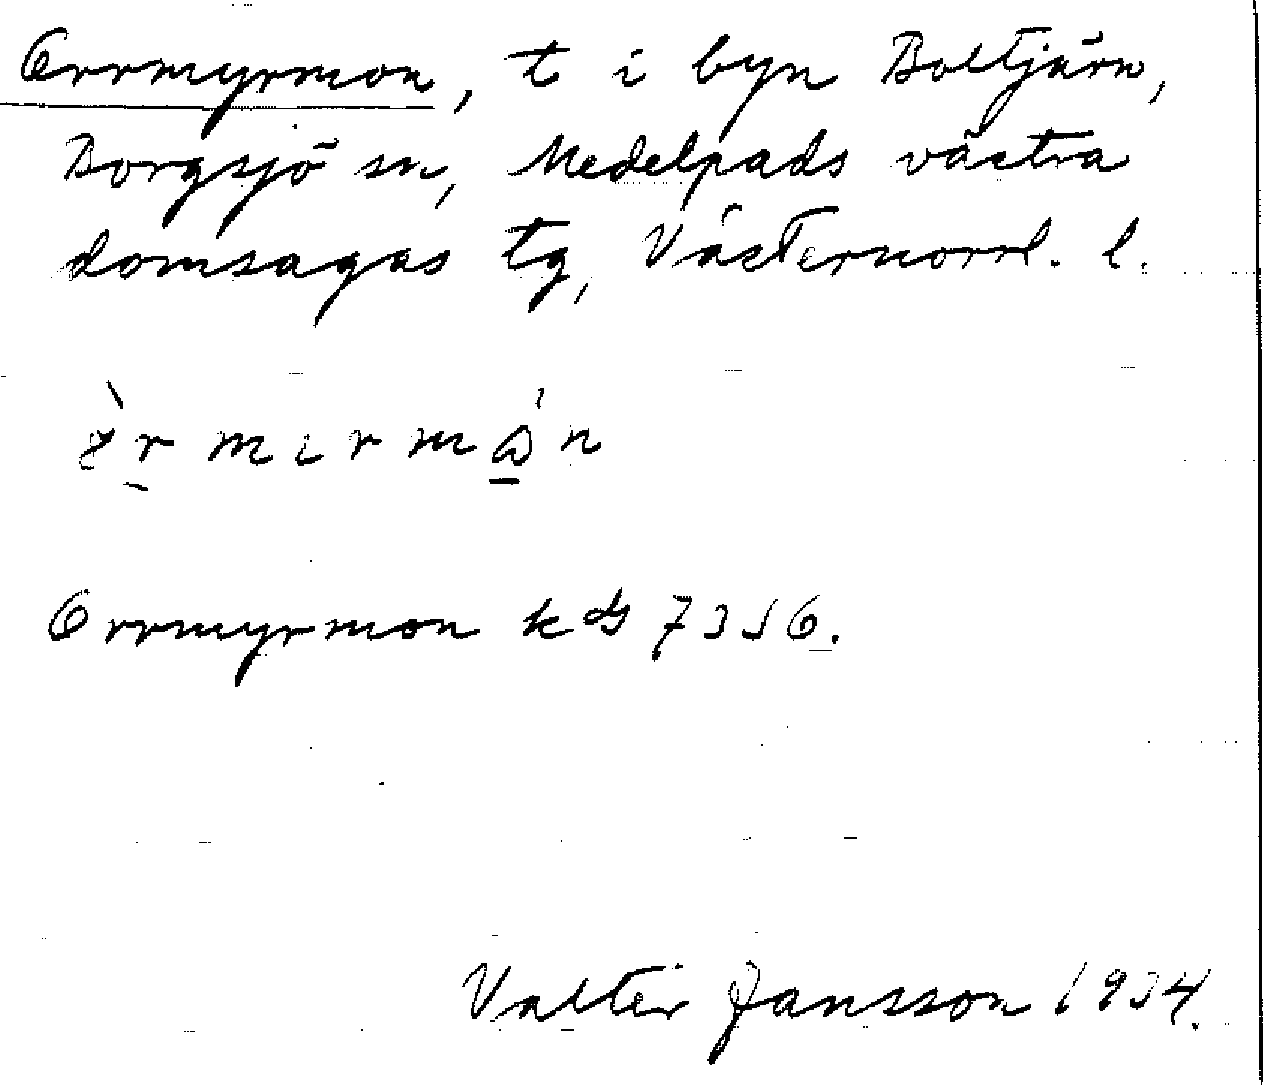 Orrmyrmon, t i byn Boltjärn,
Borgsjö sn, Medelpads västra
domsagas tg, Västernorrl. l.
Orrmyrmon kds 7356.
Valter Jansson 1934.